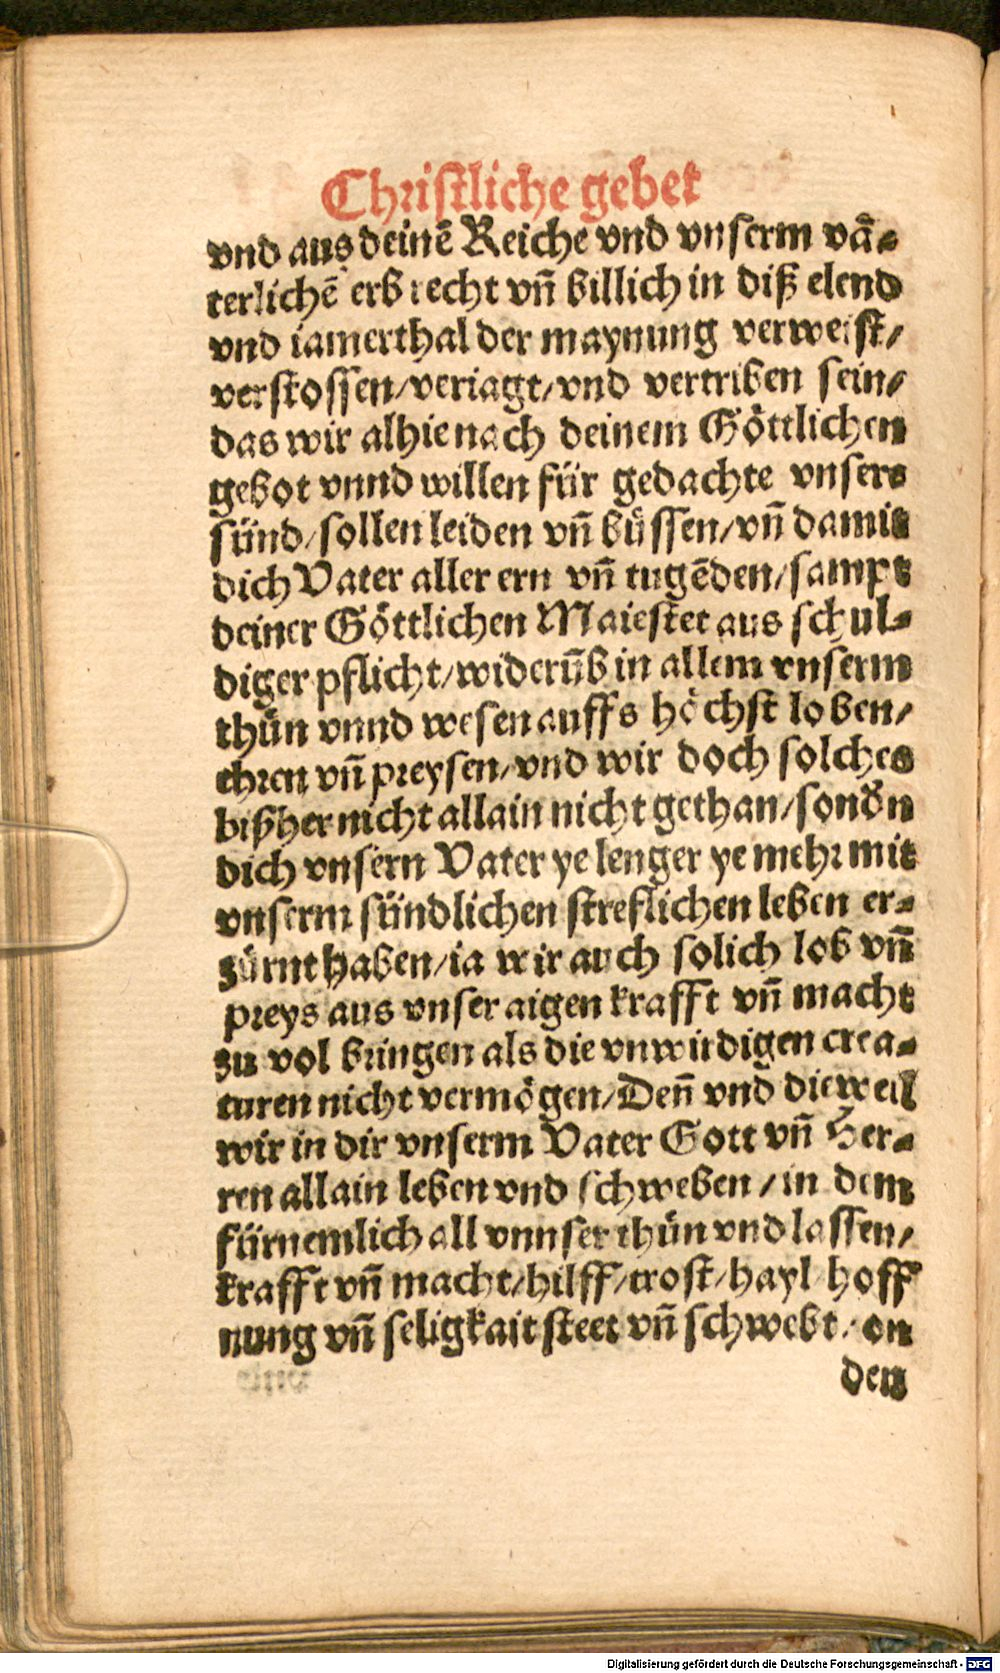 Christliche gebet
vnd aus deinē Reiche vnd vnserm vä-
terlichē erb recht vn̄ billich in diß elend
vnd iamerthal der maynung verweist/
verstossen/veriagt/vnd vertriben sein/
das wir alhie nach deinem Göttlichen
gebot vnnd willen für gedachte vnsere
sünd/sollen leiden vn̄ büssen/vn̄ damit
dich Vater aller ern vn̄ tugēden/sampt
deiner Göttlichen Maiestet aus schul-
diger pflicht/widerūb in allem vnserm
thůn vnnd wesen auffs höchst loben/
ehren vn̄ preysen/vnd wir doch solches
bißher nicht allain nicht gethan/sondn
dich vnsern Vater ye lenger ye mehr mit
vnserm sündlichen streflichen leben er-
zürnt haben/ia wir auch solich lob vn̄
preys aus vnser aigen krafft vn̄ macht
zu vol bringen als die vnwirdigen crea-
turen nicht vermögen/Den̄ vnd dieweil
wir in dir vnserm Vater Gott vn̄ Her-
ren allain leben vnd schweben/in dem
fürnemlich all vnnser thůn vnd lassen/
krafft vn̄ macht/hilff/trost/hayl/hoff
nung vn̄ seligkait steet vn̄ schwebt/on
den
Digitalisierung gefördert durch die Deutsche Forschungsgemeinschaft - DFG